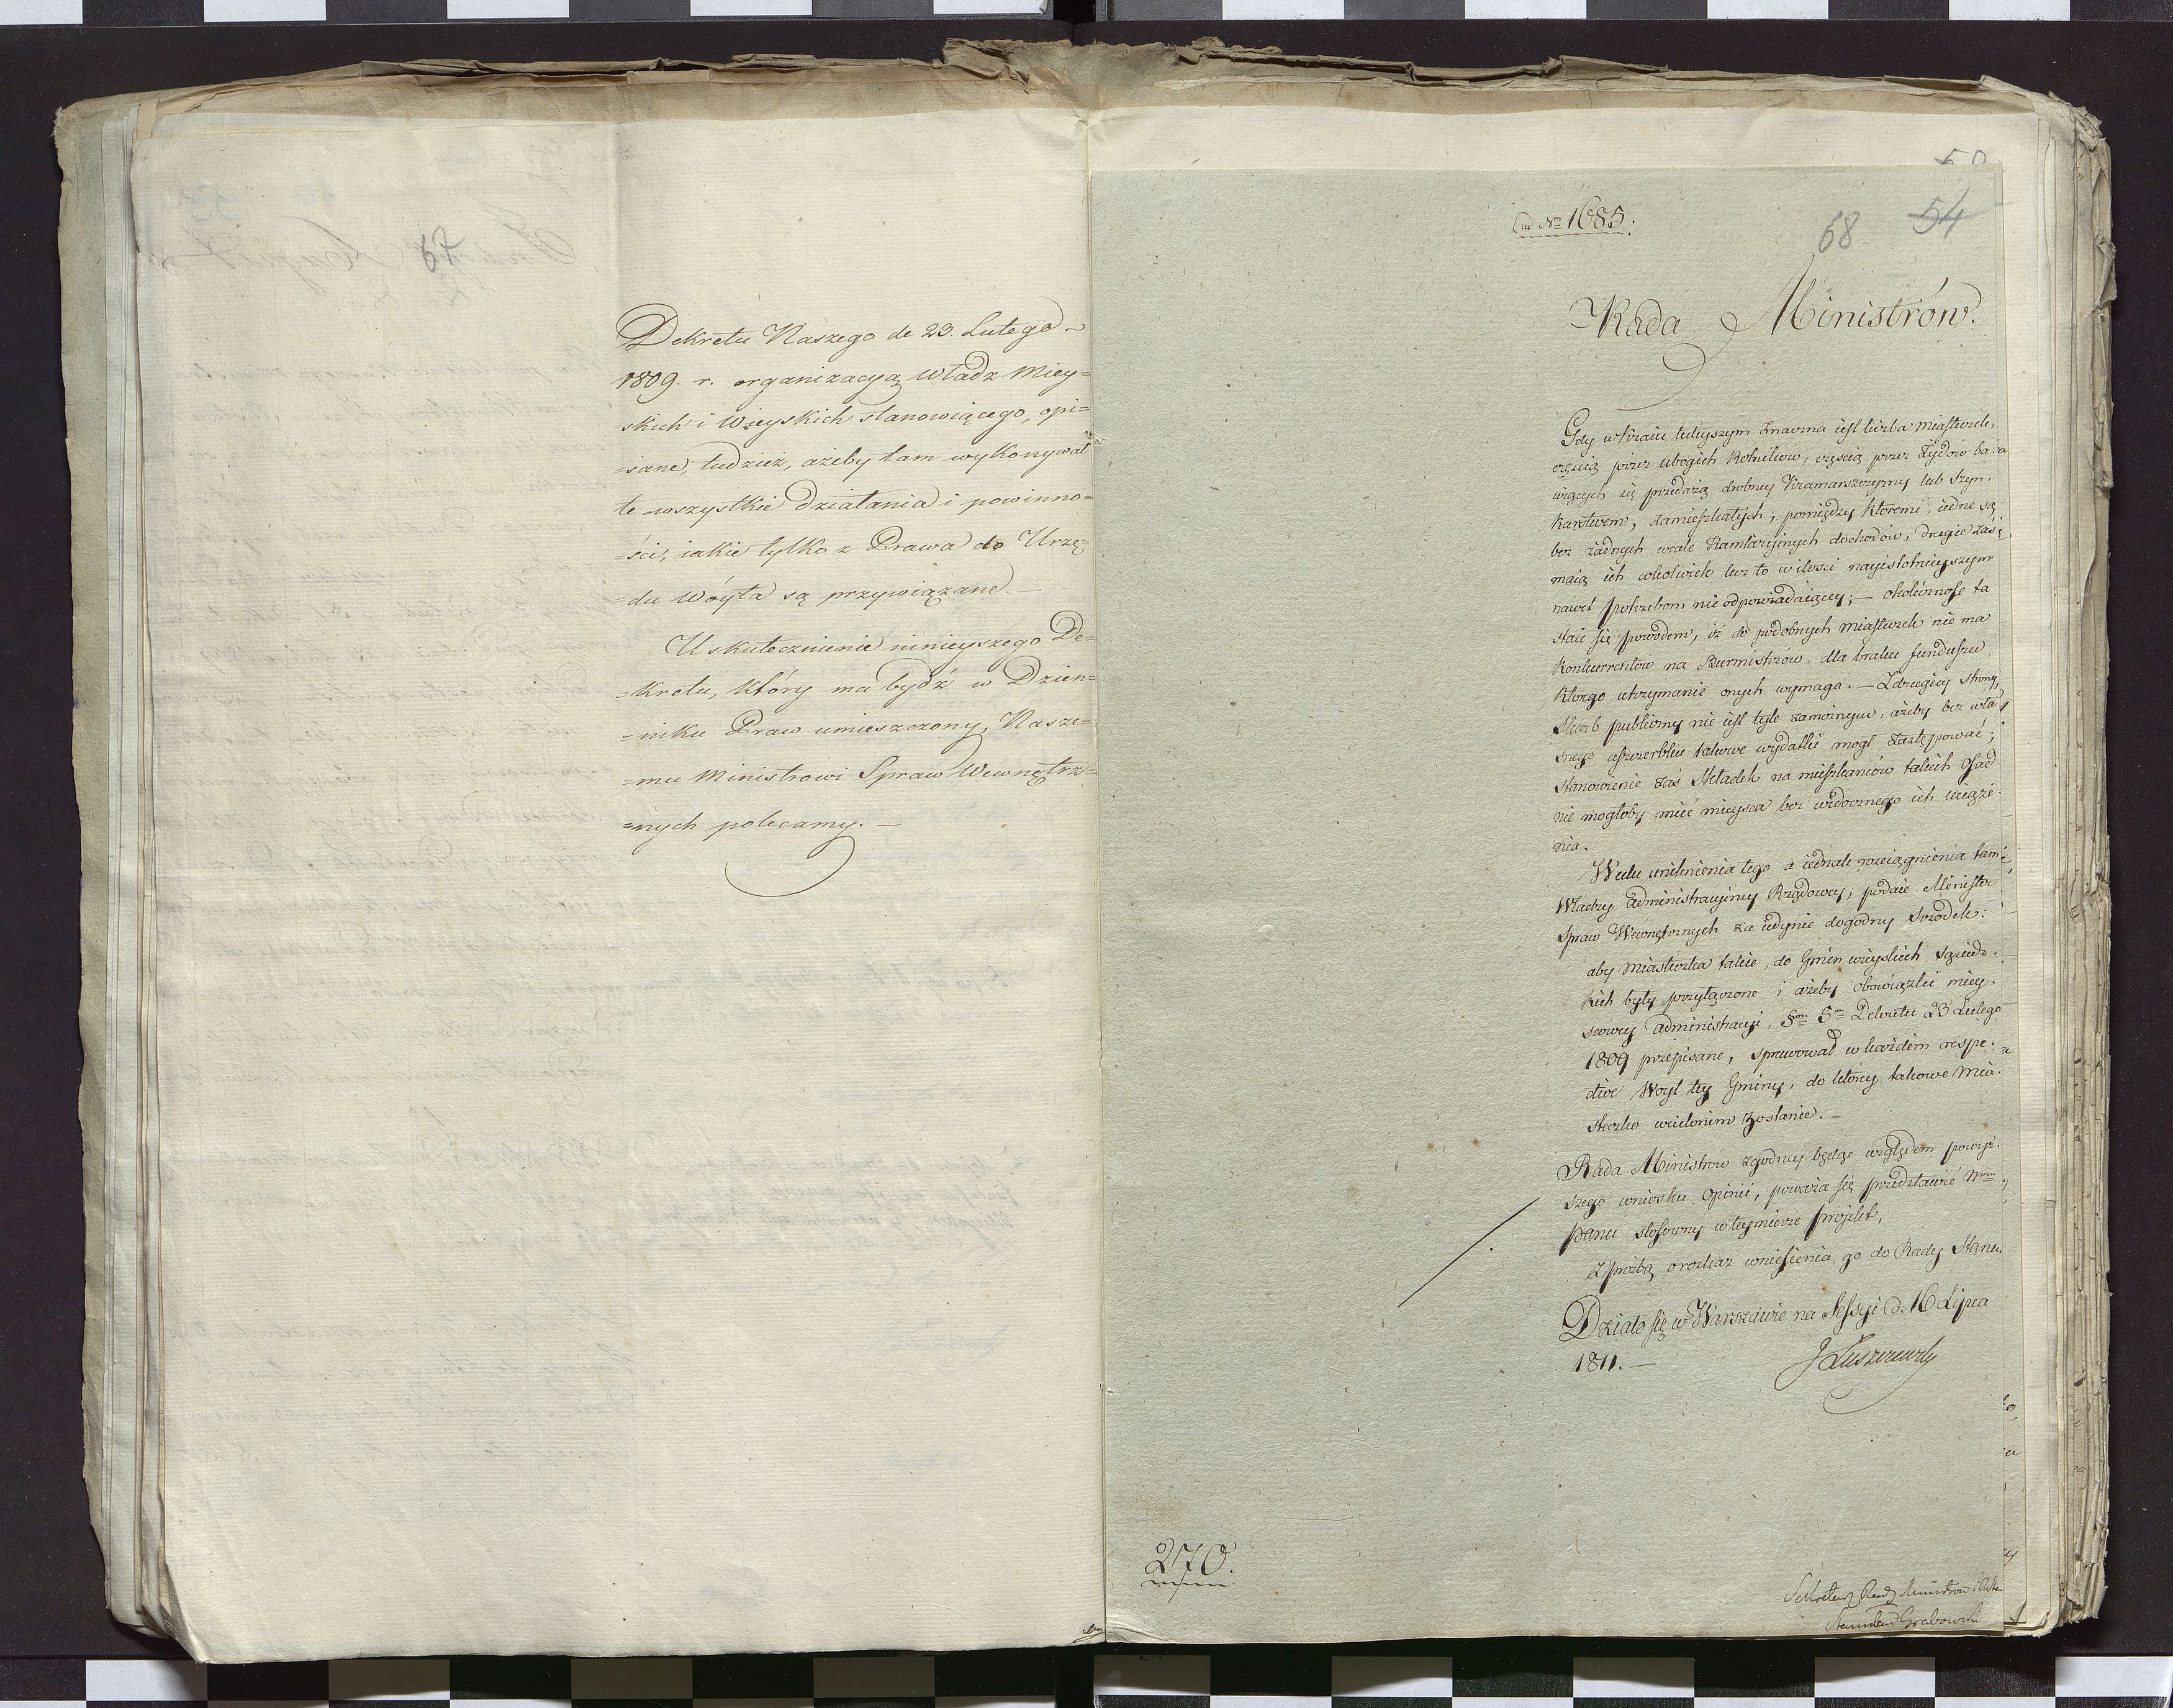 Dekretu Naszego de 23. Lutego
1809. r. organizacyą Władz Miey=
=skich i Wieyskich stanowiącego, opi=
=sane, tudzież, ażeby tam wykonywał
te wszystkie działania i powinno=
=ści, iakie tylko z Prawa do Urzę=
=du Wóyta są przywiązane. —
Uskutecznienie ninieyszego De=
=kretu, który ma bydź w Dzien=
=niku Praw umieszczony, Nasze=
=mu Ministrowi Spraw Wewnętrz=
=nych polecamy. —
ad Nm 1685.
68 54
Rada Ministrów.
Gdy w kraiu tuteyszym znaczna iest liczba miasteczek,
częścią przez ubogich Rolników, częścią przez Żydów ba-
wiących się przedażą drobney Kramarszczyzny lub Szyn-
karstwem, zamieszkałych; pomiędzy któremi, iedne są
bez żadnych wcale Kamlaryinych dochodów, drugie zaś
maią ich cokolwiek lecz to w ilości nayistotnieyszym
nawet potrzebom nie odpowiadaiącey; — okoliczność ta
staie się powodem, iż do podobnych miasteczek nie ma
Konkurrentów na Burmistrzów dla braku funduszu
którego utrzymanie onych wymaga. — Z drugiey strony,
Skarb publiczny nie iest tyle zamożnym, ażeby bez wła-
snego uszczerbku takowe wydatki mógł zastępować;
stanowienie zaś Składek na mieszkańców takich Osad
nie mogłoby mieć mieysca bez widocznego ich uciąże-
nia.
W celu uniknienia tego a iednak rozciągnienia tam
Władzy administracyiney Rządowey; podaie Minister
Spraw Wewnętrznych za iedynie dogodny srzodek:
aby miasteczka takie, do Gmin wieyskich sąsiedz-
kich były przyłączone i ażeby obowiązki miey-
scowey administracyi, 5m 6m Dekretu 23 Lutego
1809 przepisane, sprawował w każdém respe-
ctive Woyt tey Gminy, do którey takowe mia-
steczko wcielonem zostanie. —
Rada Ministrów zgodney będąc względem powyż-
szego wniosku Opinii, poważa się przedstawić Nmu
Panu stosowny w tey mierze projekt,
z prożbą o rozkaz wniesienia go do Rady Stanu.
Działo się w Warszawie na Sessyi d. 16 Lipca
1811. —
J Łuszczewsky
270.
Sekretarz Rady Ministrów
Stanisław Grabowski